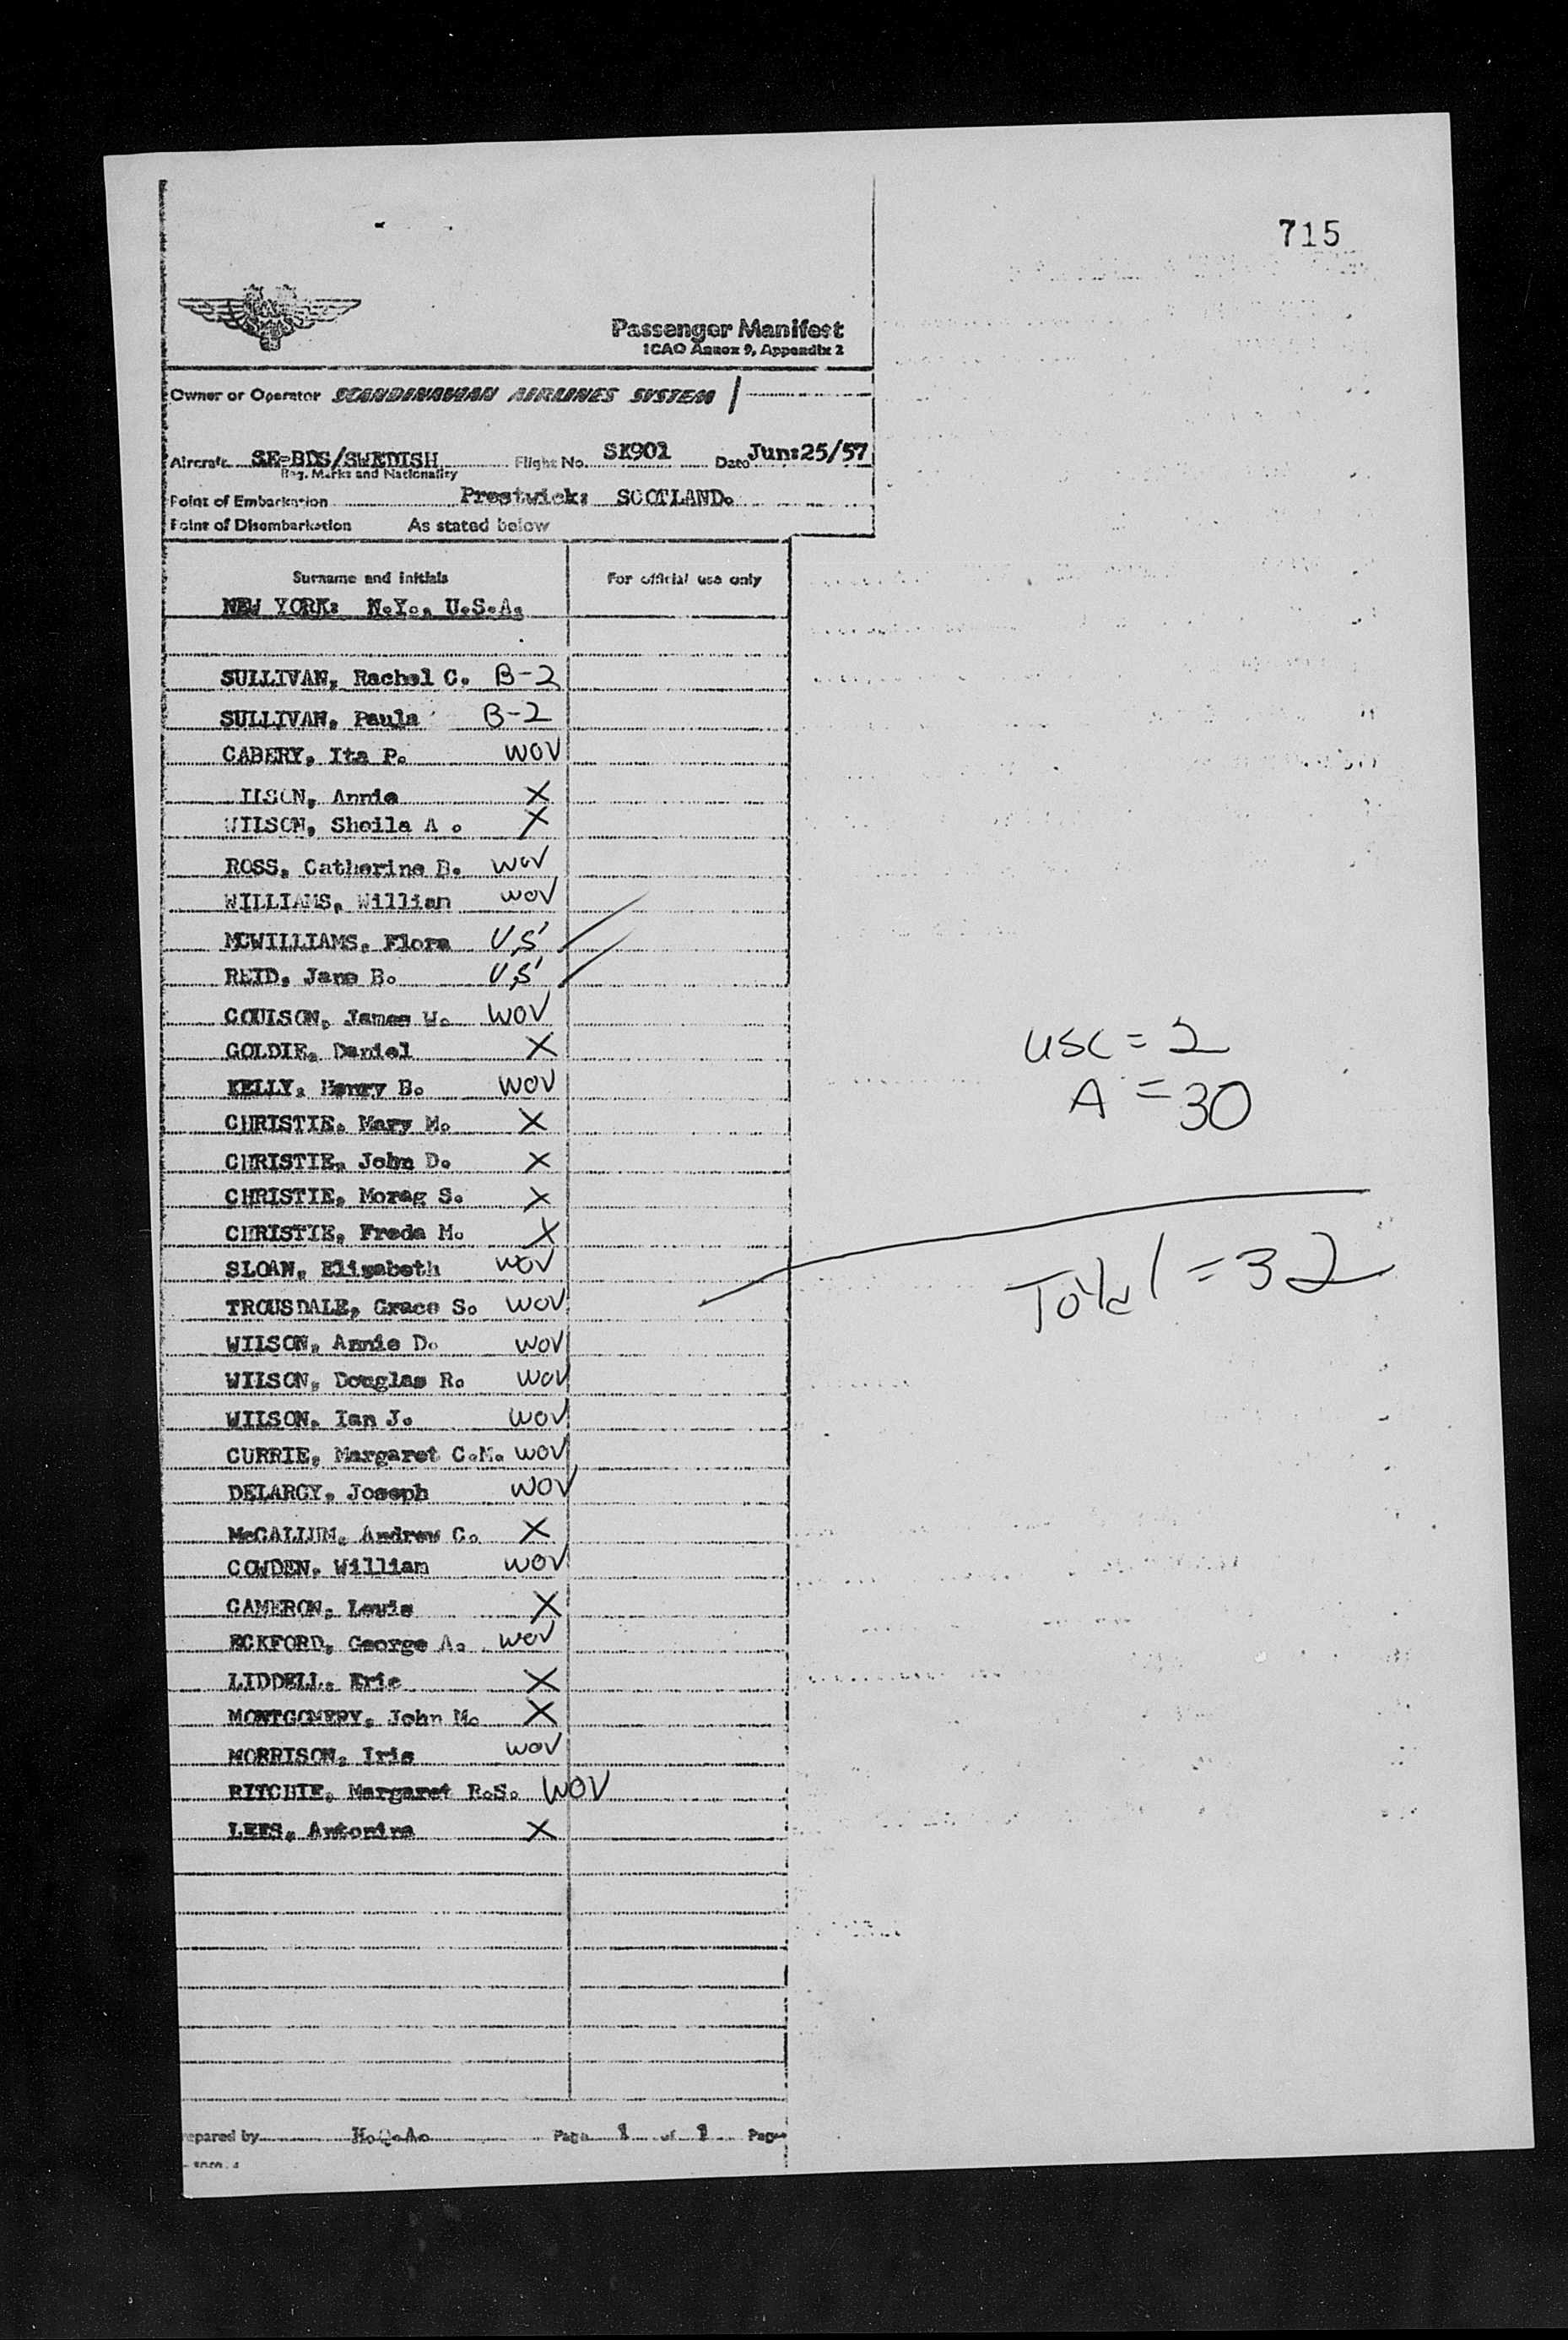 715
SAS
Passenger Manifest
ICAO Annex 9, Appendix 2
Owner or Operator SCANDINAVIAN AIRLINES SYSTEM
Aircraft SE-BDS/SWEDISH Flight No. SK901 Date Jun:25/57
Reg. Marks and Nationality
Point of Embarkation Prestwick: SCOTLAND.
Point of Disembarkation As stated below
Surname and initials For official use only
NEW YORK: N.Y., U.S.A.
SULLIVAN, Rachel C. B-2
SULLIVAN, Paula B-2
CABERY, Ita P. WOV
ILSON, Annie X
WILSON, Sheila A. X
ROSS, Catherine B. WOV
WILLIAMS, William WOV
MCWILLIAMS, Flora U,S'
REID, Jane B. U,S'
COULSON, James W. WOV
GOLDIE, Daniel X
KELLY, Henry B. WOV
USC = 2
CHRISTIE, Mary M. X
A = 30
CHRISTIE, John D. X
CHRISTIE, Morag S. X
CHRISTIE, Freda M. X
SLOAN, Elizabeth WOV
Total = 32
TROUSDALE, Grace S. WOV
WILSON, Annie D. WOV
WILSON, Douglas R. WOV
WILSON, Ian J. WOV
CURRIE, Margaret C.M. WOV
DELARGY, Joseph WOV
McCALLUM, Andrew C. X
COWDEN, William WOV
CAMERON, Louis X
ECKFORD, George A. WOV
LIDDELL, Eric X
MONTGOMERY, John M. X
MORRISON, Iris WOV
RITCHIE, Margaret R.S. WOV
LEES, Antonina X
repared by H.Q.A. Page 1 of 1 Page